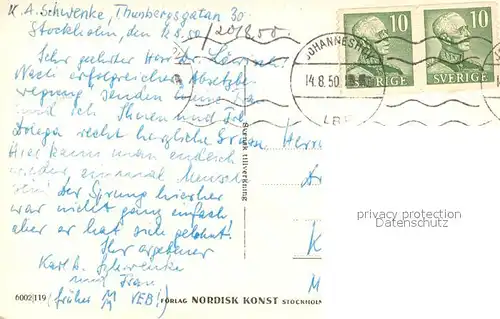 K. A. Schwenke, Thunbergsgatan 30
Stockholm, den 12.8.50
/20/8.50.
Sehr geehrter Herr
Nach erfolgreicher Absetzbewegung senden
und ich Ihnen und
recht herzliche Grüsse,
Hier kann man endlich
wieder einmal Mensch
sein! Der Sprung hierher
war nicht ganz einfach,
aber er hat sich gelohnt!
Ihr ergebener
Karl A. Schwenke
und Frau
(früher VEB!)
JOHANNESHOV
14.8.50
LBR
10
SVERIGE
10
SVERIGE
Svensk tillverkning
Herrn
K
M
privacy protection
Datenschutz
6002/119
FÖRLAG NORDISK KONST STOCKHOLM